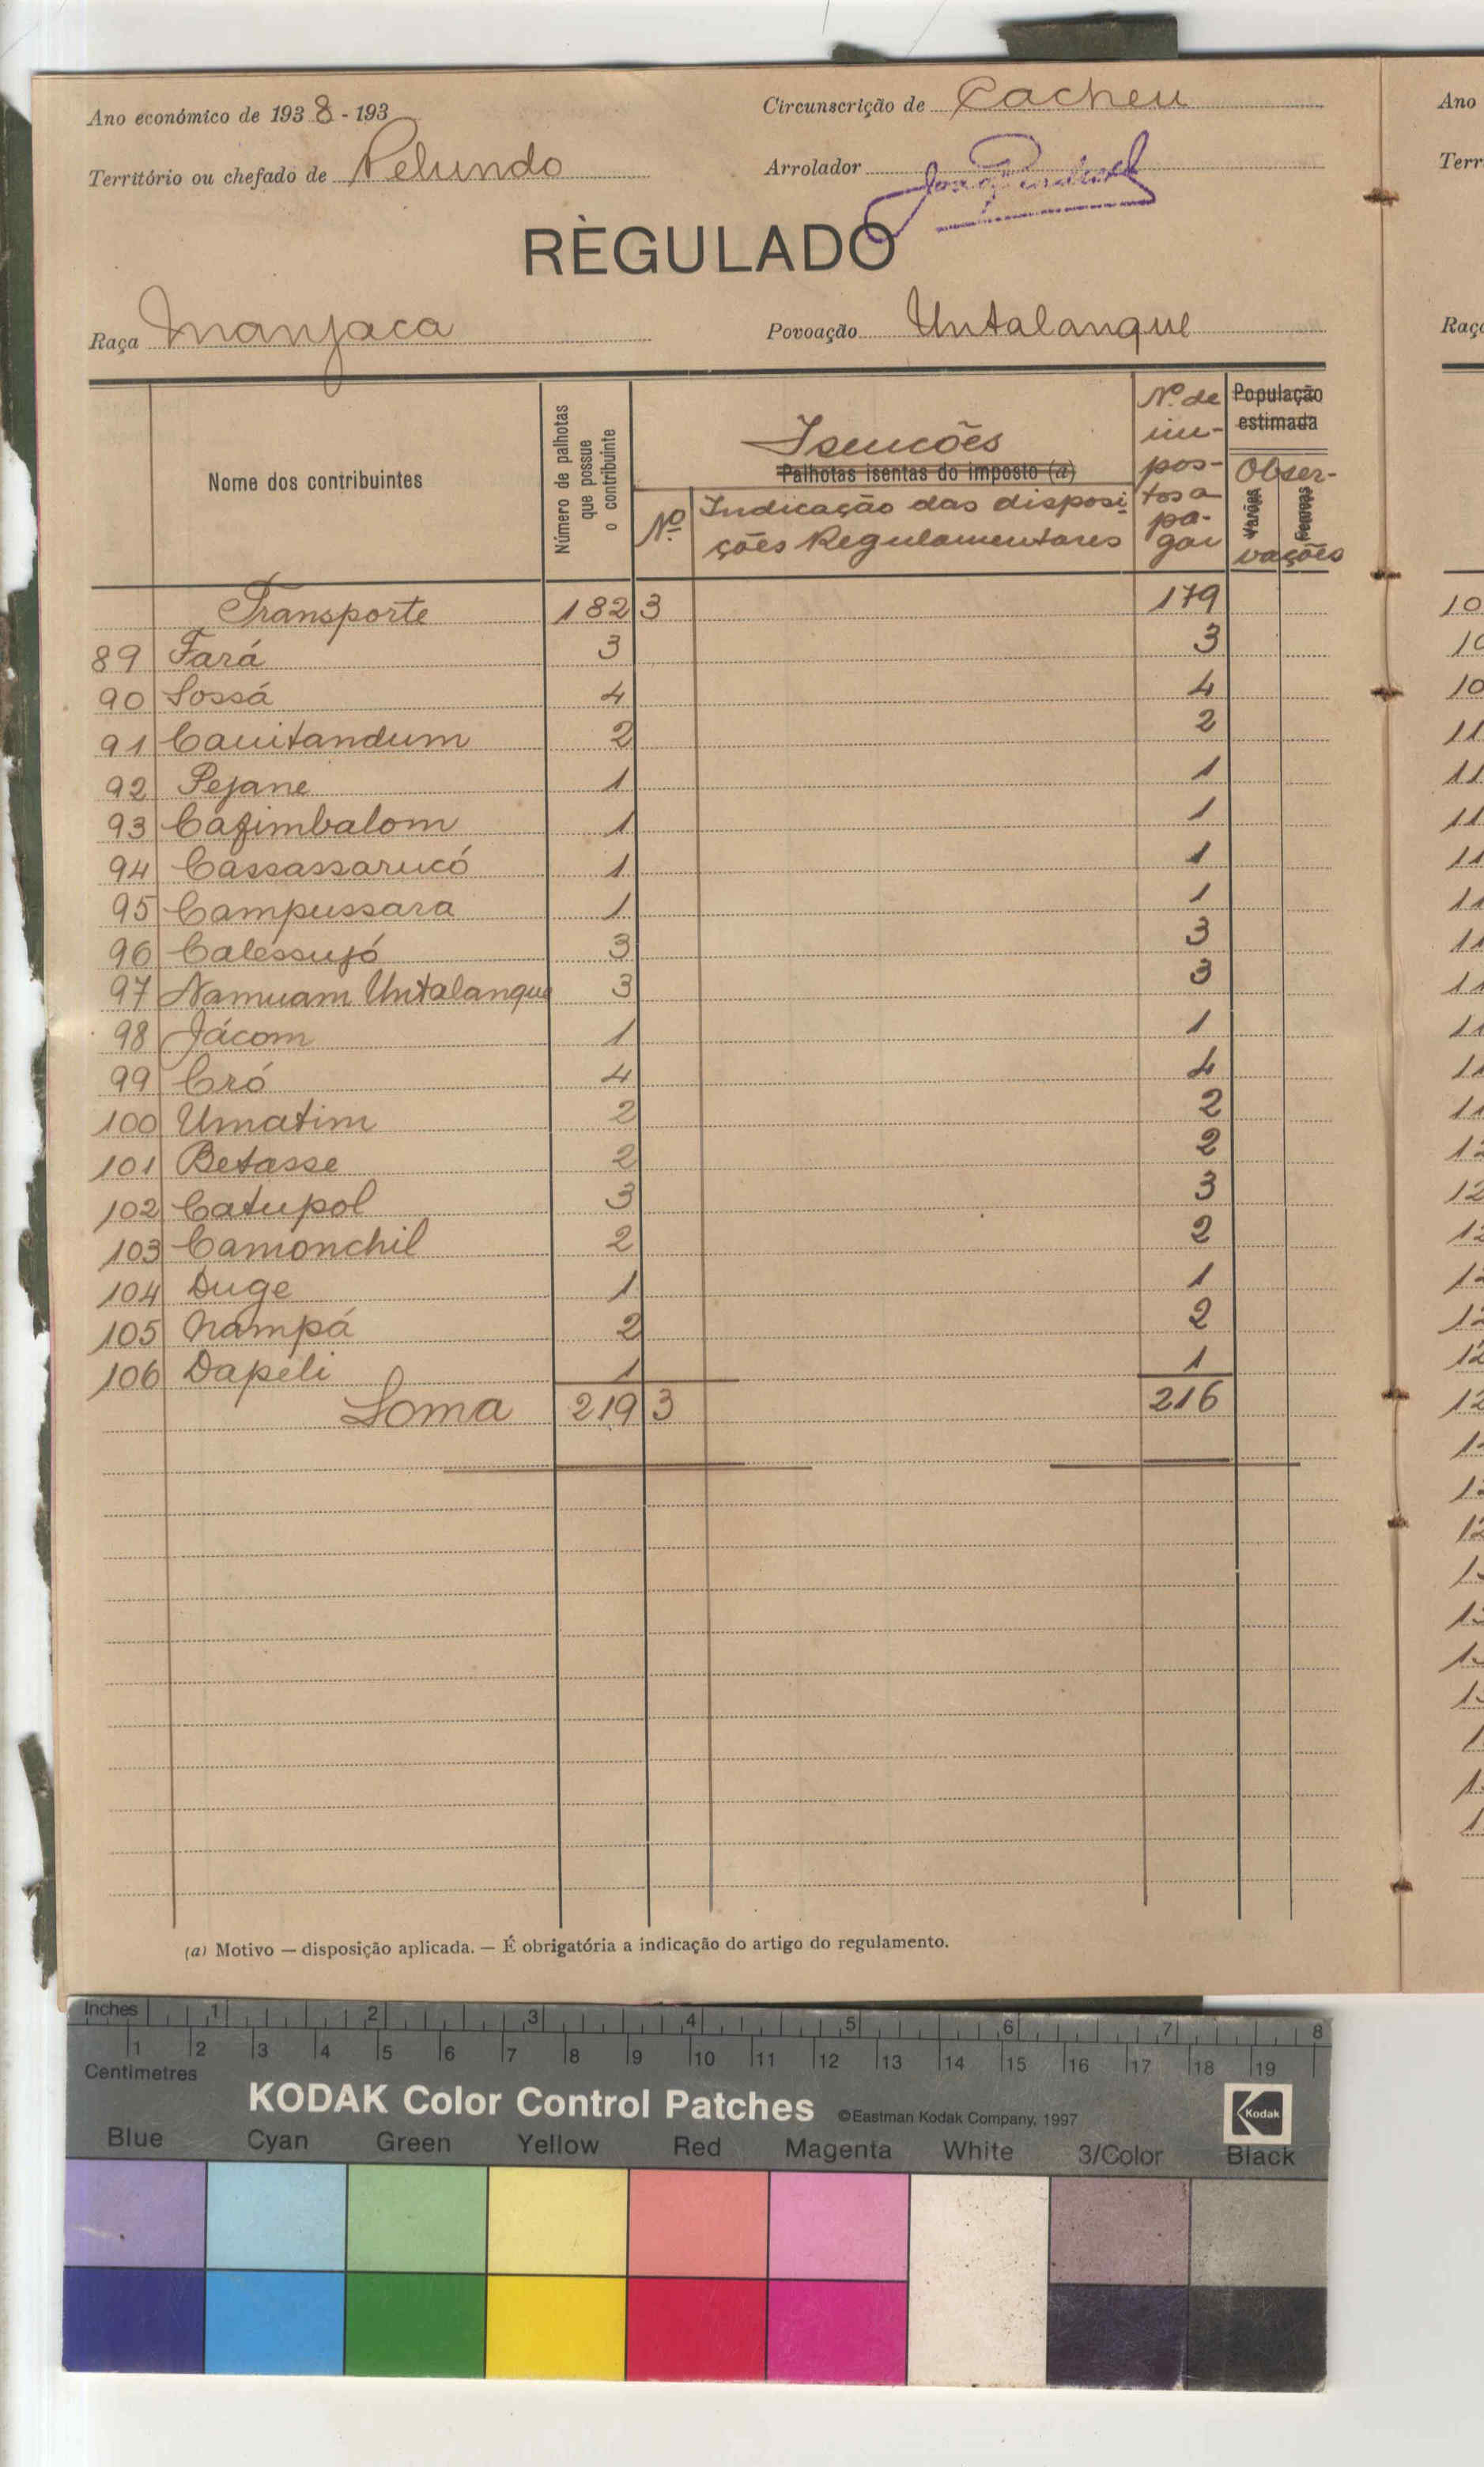 Ano económico de 1938-193
Circunscrição de Cacheu
Território ou chefado de Pelundo
Arrolador
RÈGULADO
Raça Manjaca
Povoação Untalanque
Nome dos contribuintes
Número de palhotas que possue o contribuinte
Isencões
Palhotas isentas do imposto (a)
Nº
Indicação das disposi-
ções Regulamentares
Nº de im-pos-tos a pa-gar
População estimada
Obser-vações
Varões
Femeas
Transporte 182 3 179
89 Fará 3 3
90 Sossá 4 4
91 Cauitandum 2 2
92 Pejane 1 1
93 Cafimbalom 1 1
94 Cassassarucó 1 1
95 Campussara 1 1
96 Calessujó 3 3
97 Namuam Untalanque 3 3
98 Jácom 1 1
99 Cró 4 4
100 Umatim 2 2
101 Betasse 2 2
102 Catupol 3 3
103 Camonchil 2 2
104 Duge 1 1
105 Nampá 2 2
106 Dapéli 1 1
Soma 219 3 216
(a) Motivo — disposição aplicada. — É obrigatória a indicação do artigo do regulamento.
Ano
Terr
Raça
Inches 1 2 3 4 5 6 7 8
1 2 3 4 5 6 7 8 9 10 11 12 13 14 15 16 17 18 19
Centimetres
KODAK Color Control Patches ©Eastman Kodak Company, 1997 Kodak
Blue Cyan Green Yellow Red Magenta White 3/Color Black